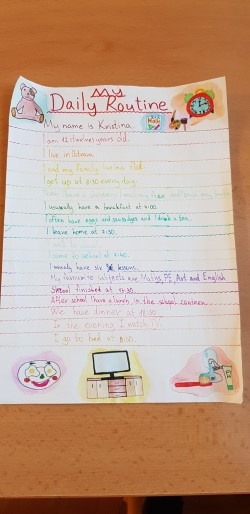 My
Daily Routine
My name is Kristina.
Math
I am 12 (twelve) years old.
I live in Ostrava
and my family lives in flat.
get up at 6:30 every day.
I usually have a breakfast at 7:00.
I often have eggs and sausadges and I drink a tea.
I leave home at 7:30.
come to school at 7:40.
I usually have six lessons.
My favourite subjects are Maths, PE, Art and English
School finished at
After school I have a lunch in the school canteen.
We have dinner at 18:30.
In the evening I watch TV.
I go to bed at